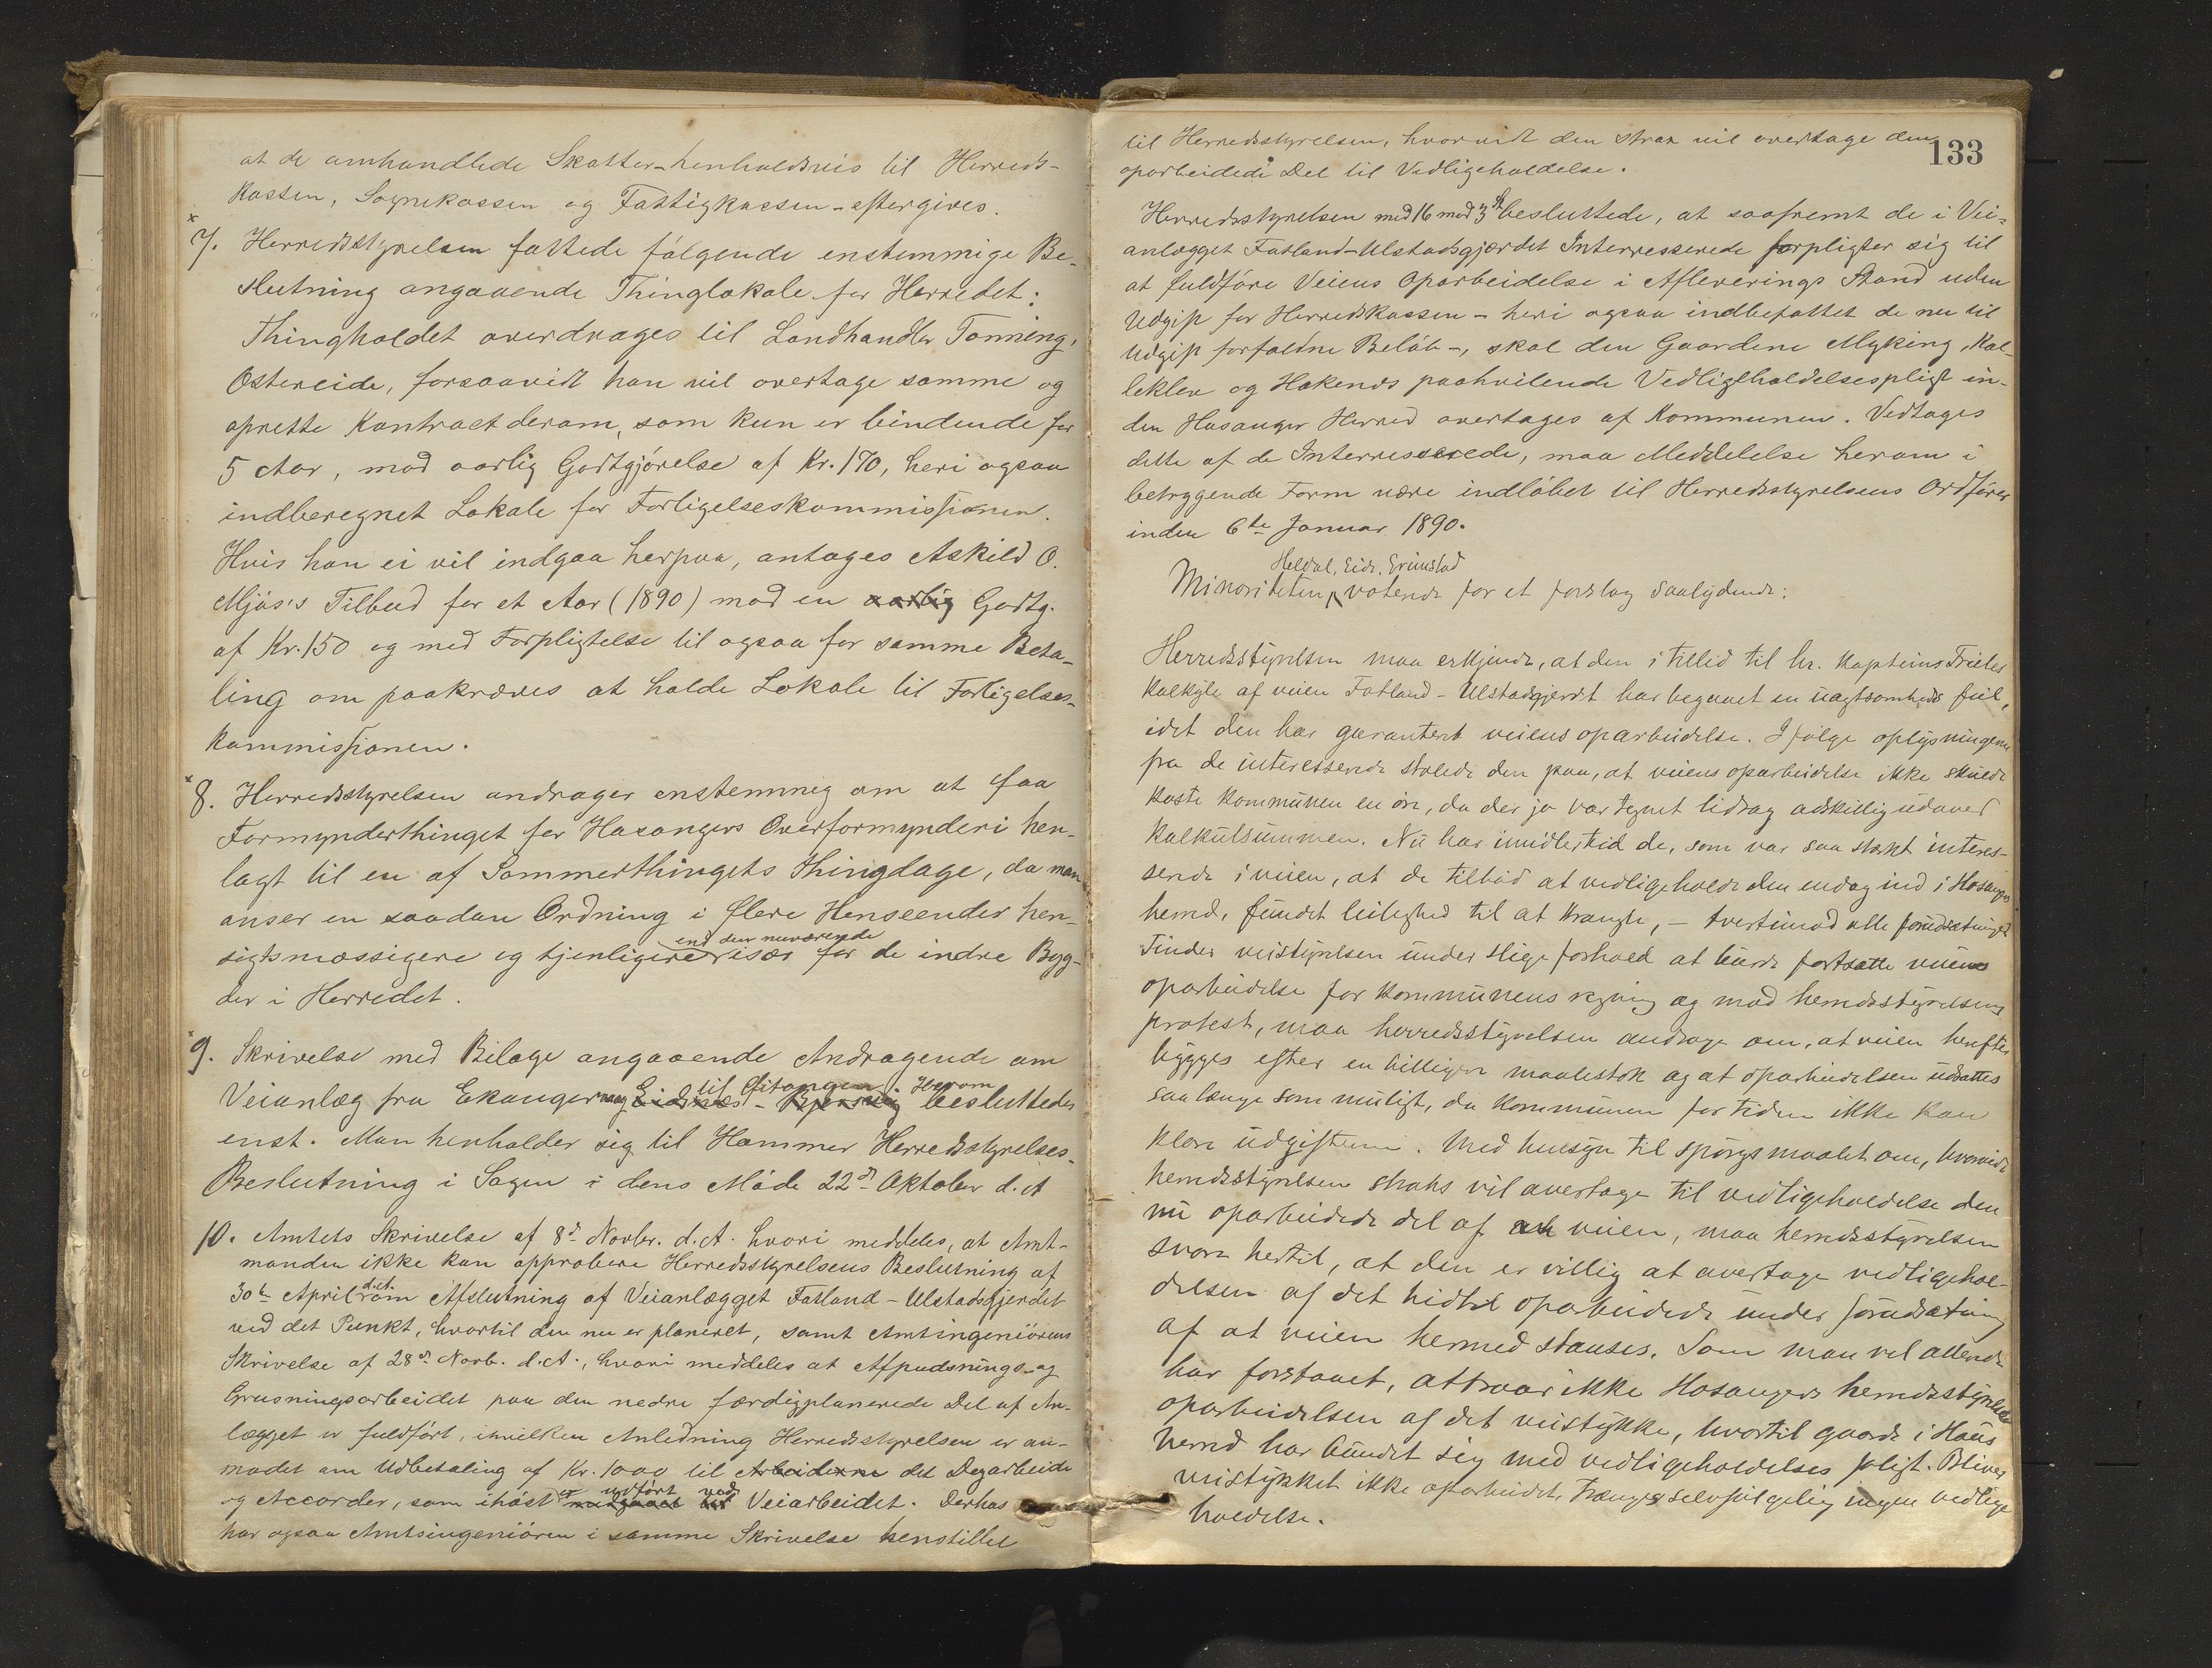 at de omhandlede Skatter - henholdsvis til Herreds-
kassen, Sognekassen og Fattigkassen - eftergives.
7. Herredsstyrelsen fattede følgende enstemmige Be-
slutning angaaende Thinglokale for Herredet:
Thingholdet overdrages til Landhandler Tonning,
Ostereide, forsaavidt han vil overtage samme og
oprette Kontract derom, som kun er bindende for
5 Aar, mod aarlig Godtgjörelse af Kr. 170, heri ogsaa
indberegnet Lokale for Forligelseskommissionen.
Hvis han ei vil indgaa herpaa, antages Askild O.
Mjös's Tilbud for et Aar (1890) mod en aarlig Godtg.
af Kr. 150 og med Forpligtelse til ogsaa for samme Beta-
ling om paakræves at holde Lokale til Forligelses-
kommissionen.
8. Herredsstyrelsen andrager enstemmig om at faa
Formynderthinget for Hosangers Overformynderi hen-
lagt til en af Sommerthingets Thingdage, da man
anser en saadan Ordning i flere Henseender hen-
end den nuværende
sigtsmæssigere og tjenligere især for de indre Byg-
der i Herredet.
9. Skrivelse med Bilage angaaende Andragende om
til Herom
Veianlæg fra Ekanger Eidsnes - besluttedes
enst. Man henholder sig til Hammer Herredsstyrelses-
Beslutning i Sagen i dens Möde 22d Oktober d. A
10. Amtets Skrivelse af 8d Novbr. d. A. hvori meddeles, at Amt-
manden ikke kan approbere Herredsstyrelsens Beslutning af
d. A.
30te April om Afslutning af Veianlægget Fatland - Ulstadsgjerdet
ved det Punkt, hvortil den nu er planeret, samt Amtsingeniörens
Skrivelse af 28d Novb. d. A., hvori meddeles at Afpudsnings- og
Grusningsarbeidet paa den nedre færdigplanerede Del af An-
lægget er fuldfört, i hvilken Anledning Herredsstyrelsen er an-
modet om Udbetaling af Kr. 1000 til Arbeiderne det Dagarbeide
er udfört ved
og Accorder, som ihöst Veiarbeidet. Derhos
har ogsaa Amtsingeniören i samme Skrivelse henstillet
133
til Herredsstyrelsen, hvorvidt den strax vil overtage den
oparbeidede Del til Vedligeholdelse.
Herredsstyrelsen med 16 mod 3 St besluttede, at saafremt de i Vei-
anlægget Fatland-Ulstadsgjærdet Interresserede forpligter sig til
at fuldföre Veiens Oparbeidelse i Afleverings Stand uden
Udgift for Herredskassen - heri ogsaa indbefattet de nu til
Udgift forfaldne Belöb -, skal den Gaardene Myking, Kal-
leklev og Hakends paahvilende Vedligeholdelsespligt in-
den Hosanger Herred overtages af Kommunen. Vedtages
dette af de Interresserede, maa Meddelelse herom i
betryggende Form være indlöbet til Herredsstyrelsens Ordförer
inden 6te Januar 1890.
Heldal, Eide, Grimstad
Minoriteten, voterede for et forslag saalydende:
Herredsstyrelsen maa erkjende, at den i tillid til hr. Kapteins Trieles
kalkyle af veien Fatland - Ulstadsgjerdet har begaaet en uagtsomheds feil,
idet den har garanteret veiens oparbeidelse. I følge oplysningene
fra de interesserede stolede den paa, at veiens oparbeidelse ikke skulde
koste kommunen en öre, da der jo var tegnet bidrag adskillig udover
kalkulsummen. Nu har imidlertid de, som var saa stærkt interes-
serede i veien, at de tilböd at vedligeholde den endog ind i Hosanger
herred, fundet leilighed til at krangle, - tvertimod alle forudsætninger
Finder veistyrelsen under slige forhold at burde fortsætte veiens
oparbeidelse for kommunens regning og mod herredsstyrelsens
protest, maa herredsstyrelsen andrage om, at veien herefter
bygges efter en billigere maalestok og at oparbeidelsen udsættes
saalænge som muligt, da kommunen for tiden ikke kan
klare udgifterne. Med hensyn til spörgsmaalet om, hvorvidt
herredsstyrelsen straks vil overtage til vedligeholdelse den
nu oparbeidede del af veien, maa herredsstyrelsen
svare hertil, at den er villig at overtage vedligehol-
delsen af det hidtil oparbeidede under forudsætning
af at veien hermed stanses. Som man vel allerede
har forstaaet, attraar ikke Hosangers herredsstyrelse
oparbeidelsen af det veistykke, hvortil gaarde i Haus
herred har bundet sig med vedligeholdelses pligt. Bliver
veistykket ikke oparbeidet, trænges selvfölgelig ingen vedlige-
holdelse.